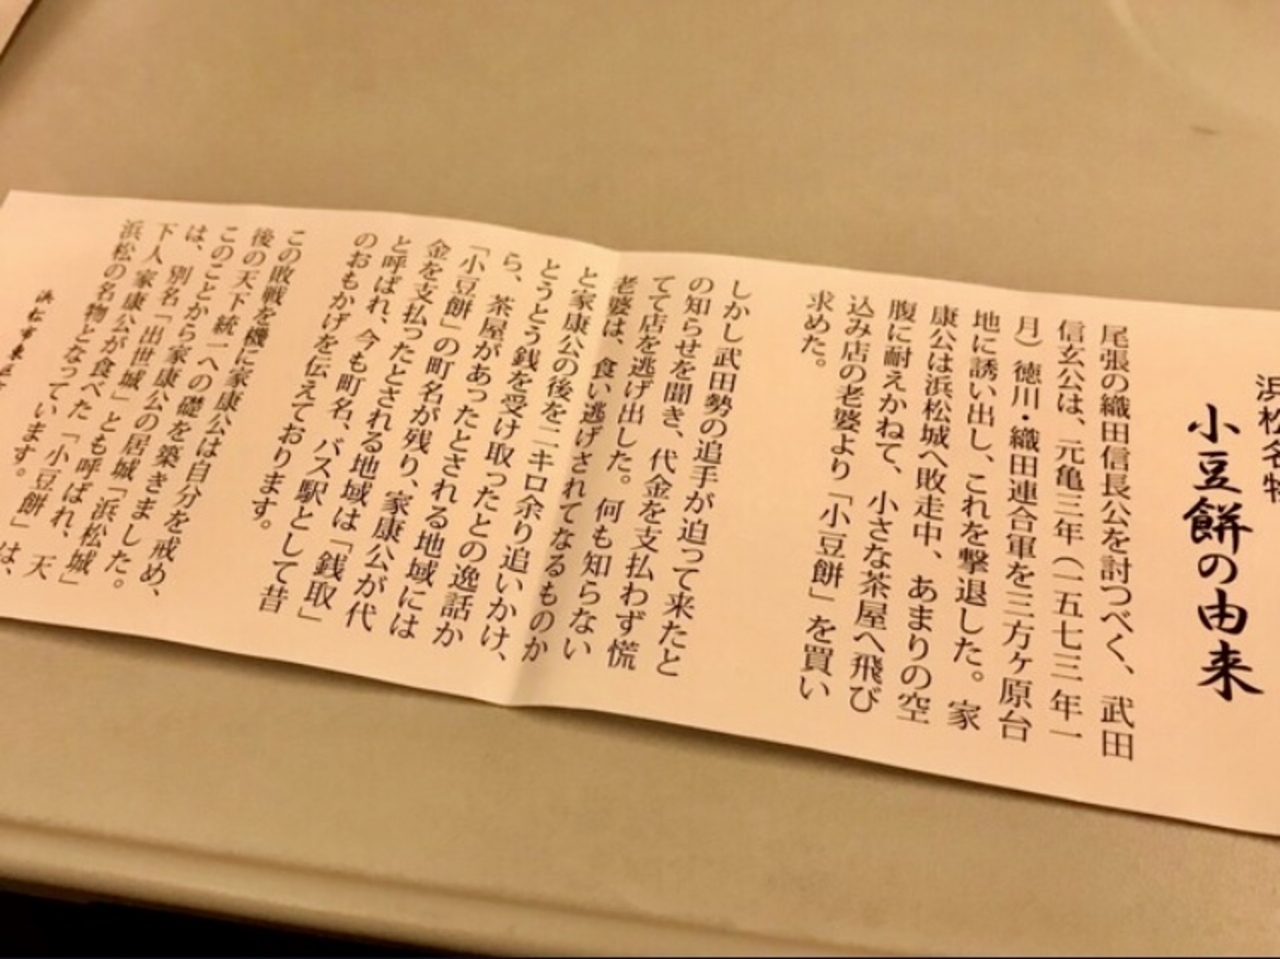 浜松名物
小豆餅の由来
尾張の織田信長公を討つべく、武田
信玄公は、元亀三年(一五七三年一
月)徳川・織田連合軍を三方ヶ原台
地に誘い出し、これを撃退した。家
康公は浜松城へ敗走中、あまりの空
腹に耐えかねて、小さな茶屋へ飛び
込み店の老婆より「小豆餅」を買い
求めた。
しかし武田勢の追手が迫って来たと
の知らせを聞き、代金を支払わず慌
てて店を逃げ出した。何も知らない
老婆は、食い逃げされてなるものか
と家康公の後を二キロ余り追いかけ、
とうとう銭を受け取ったとの逸話か
ら、茶屋があったとされる地域には
「小豆餅」の町名が残り、家康公が代
金を支払ったとされる地域は「銭取」
と呼ばれ、今も町名、バス駅として昔
のおもかげを伝えております。
この敗戦を機に家康公は自分を戒め、
後の天下統一への礎を築きました。
このことから家康公の居城「浜松城」
は、別名「出世城」とも呼ばれ、天
下人 家康公が食べた「小豆餅」は、
浜松の名物となっています。
浜松市東